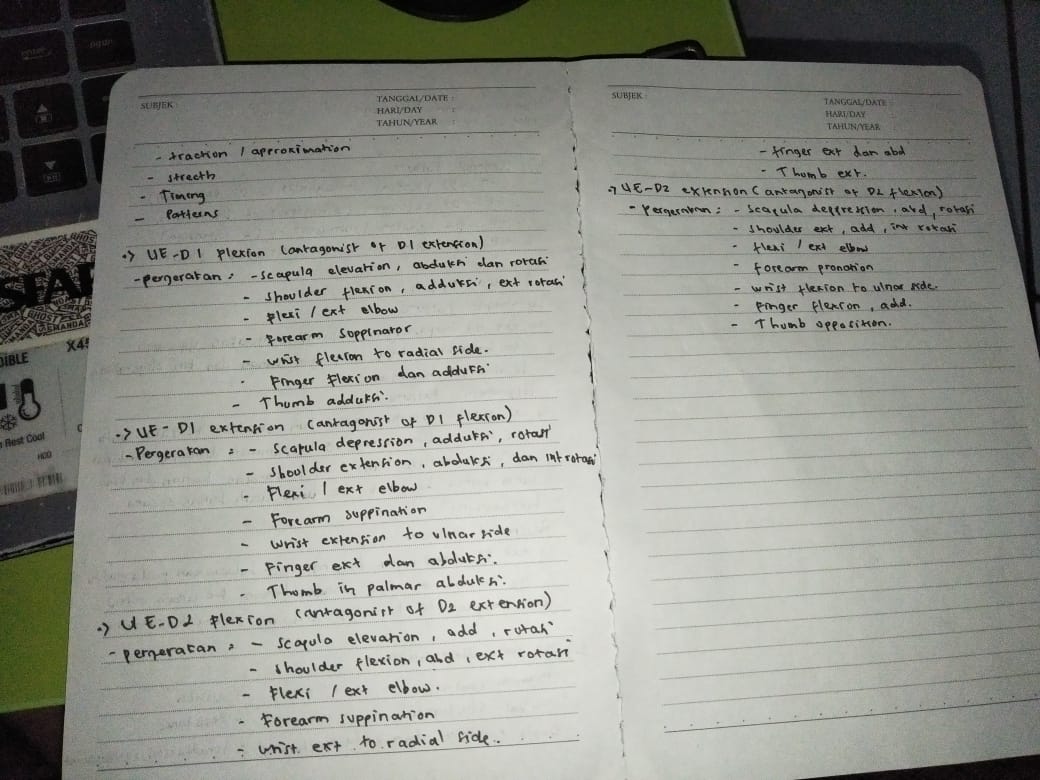 SUBJEK :
TANGGAL/DATE :
HARI/DAY :
TAHUN/YEAR :
- traction / approximation
- strecth
- Timing
- Patterns
•> UE-D1 flexion (antagonist of D1 extension)
- pergerakan : - scapula elevation, abduksi dan rotasi
- shoulder flexion, adduksi, ext rotasi
- flexi / ext elbow
- forearm suppinator
- wrist flexion to radial side.
- Finger flexion dan adduksi
- Thumb adduksi.
•> UE-D1 extension (antagonist of D1 flexion)
- Pergerakan : - scapula depression, adduksi, rotasi
- shoulder extension, abduksi, dan int rotasi
- Flexi / ext elbow
- Forearm suppination
- wrist extension to ulnar side
- Finger ext dan abduksi.
- Thumb in palmar abduksi.
•> UE-D2 flexion (antagonist of D2 extension)
- pergerakan : - scapula elevation, add, rotasi
- shoulder flexion, abd, ext rotasi
- Flexi / ext elbow.
- Forearm suppination
- wrist ext to radial side.
SUBJEK :
TANGGAL/DATE :
HARI/DAY :
TAHUN/YEAR :
- finger ext dan abd
- Thumb ext.
•> UE-D2 extension (antagonist of D2 flexion)
- Pergerakan : - scapula deppression, abd, rotasi
- shoulder ext, add, int rotasi
- flexi / ext elbow
- forearm pronation
- wrist flexion to ulnar side.
- finger flexion, add.
- Thumb opposition.
enter
Rest Cool